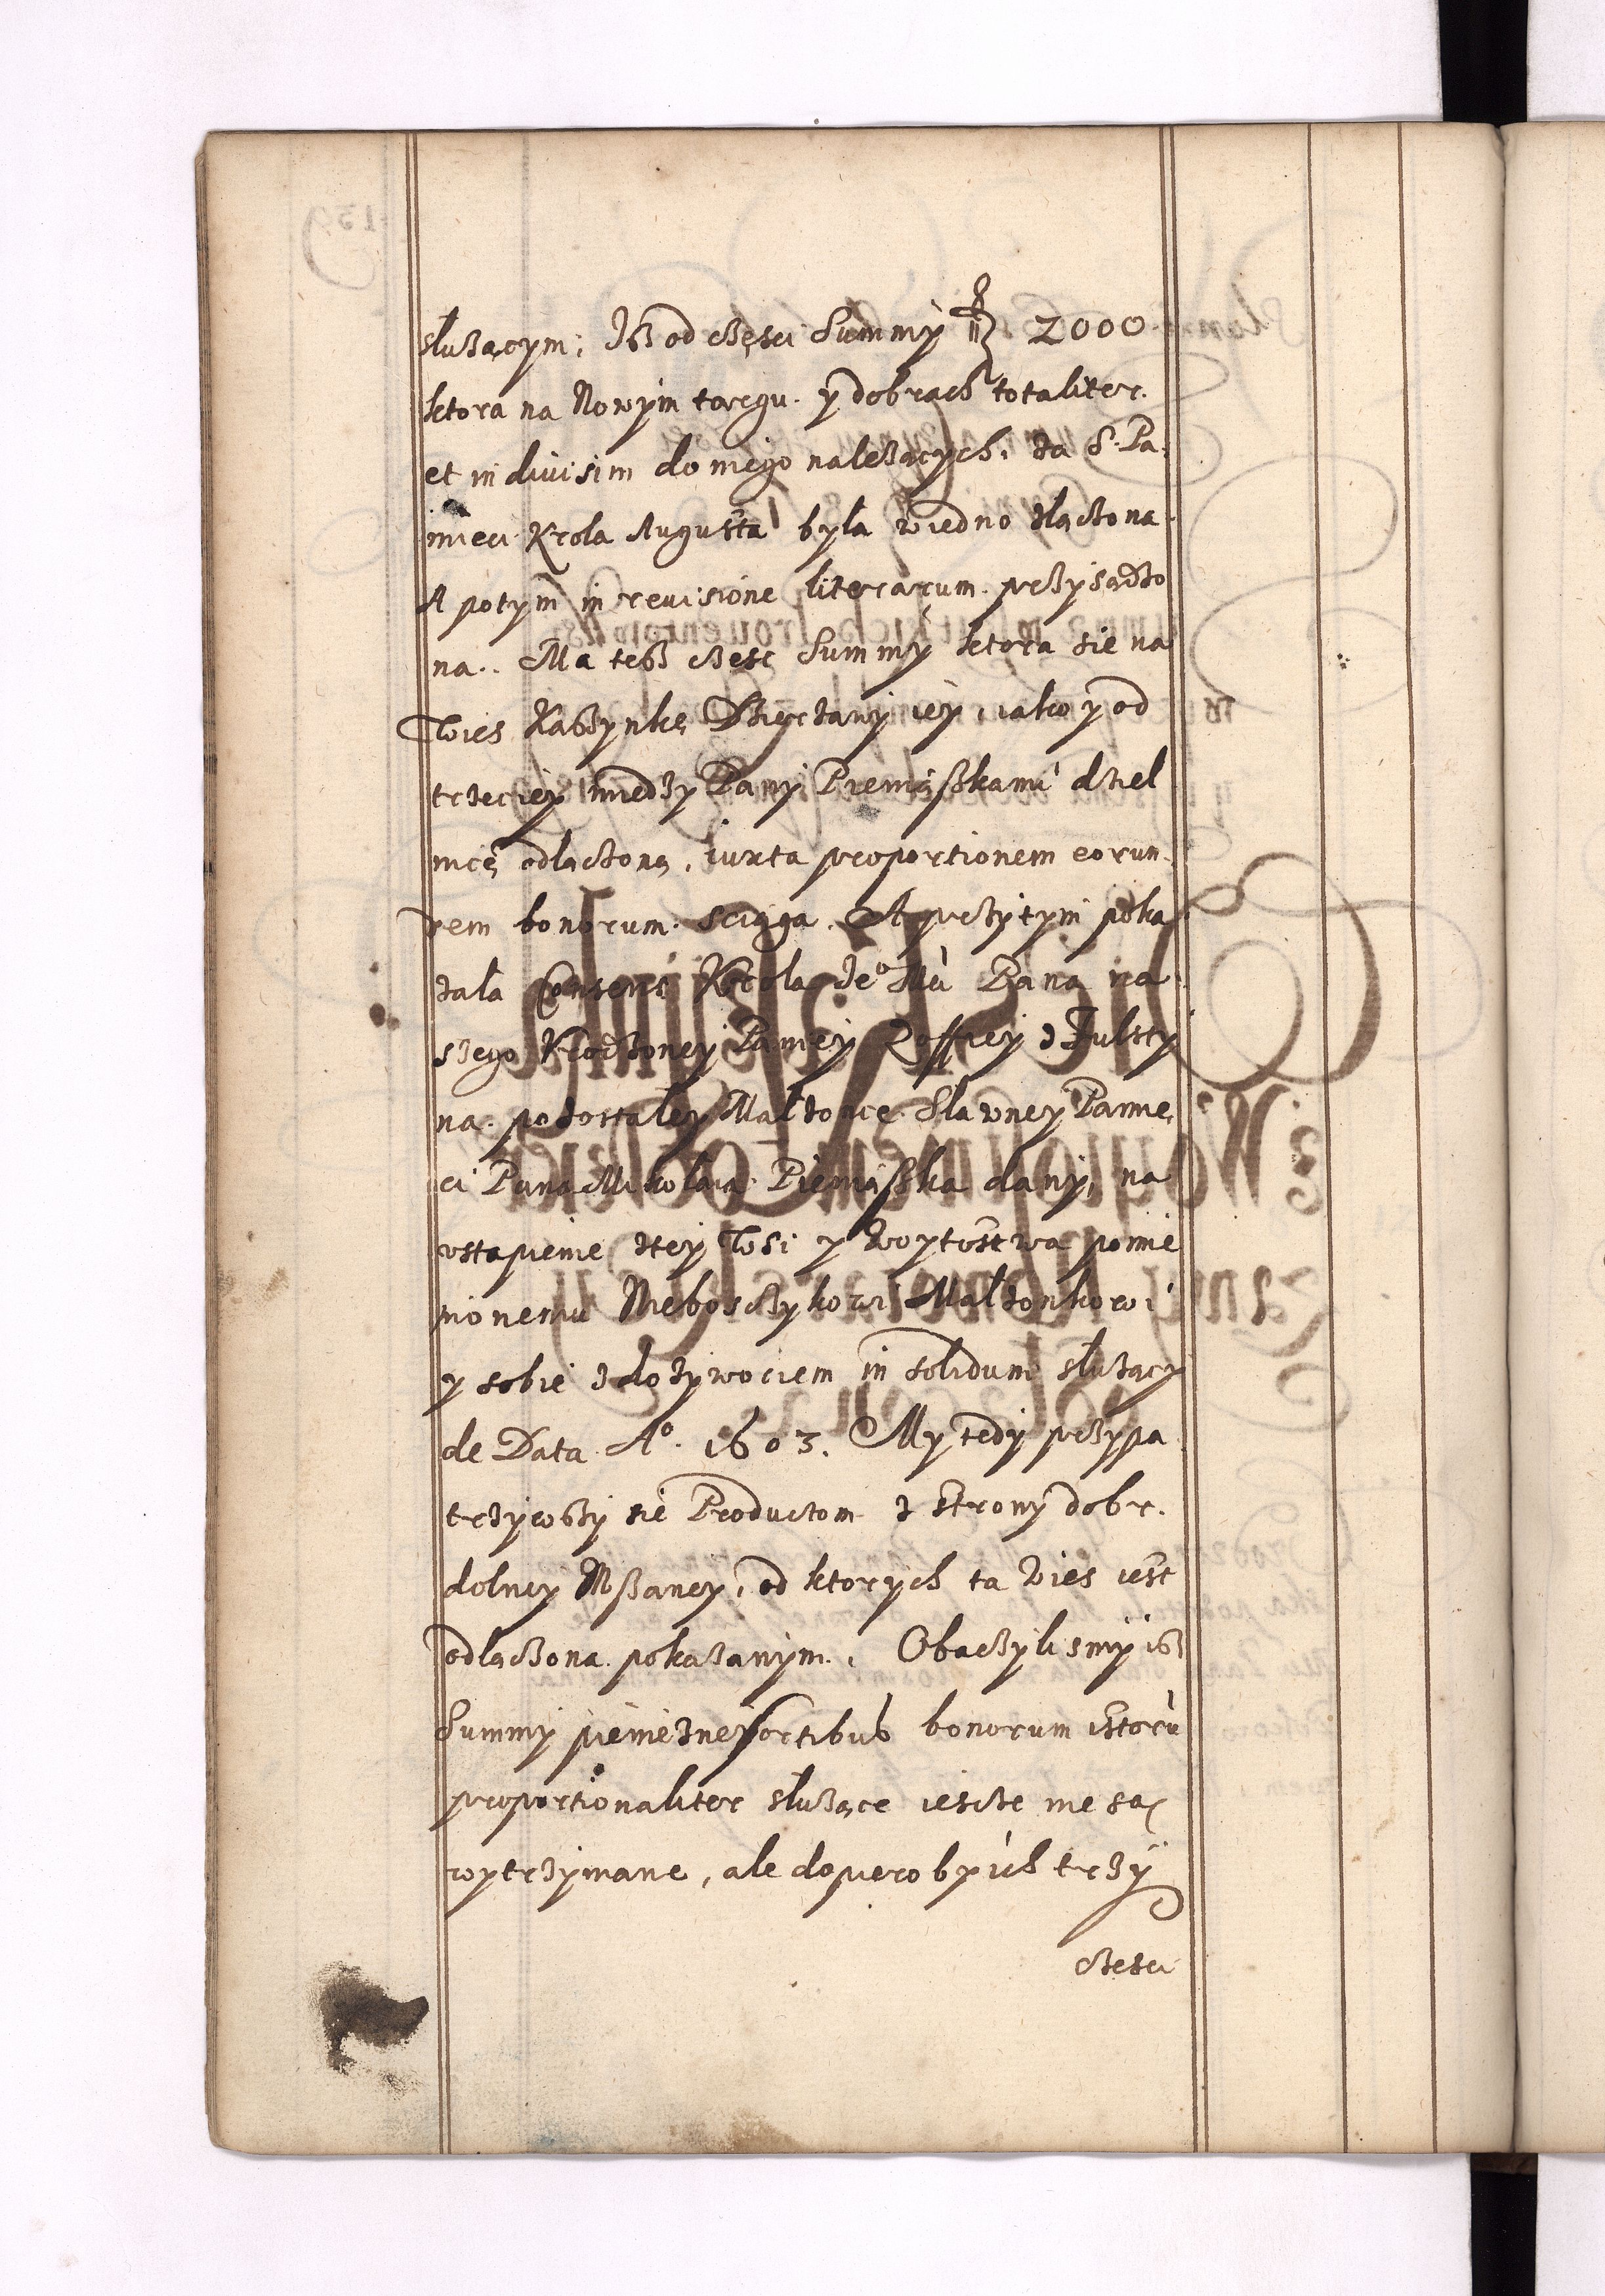 służącym, Isz od części Summy 2000
ktora na Nowym targu. y dobrach totaliter.
et indiuisim do niego należących, za S. Pa,
mieci Krola Augusta była wiedno złączona
A potym in reuisione literarum. przysądzo
na. Ma tesz częsc Summy ktora sie na
Wies Kaszynkę Dzierżawy iey, iako y od
trzeciey miedzy Pany Pieniąszkami dziel
nicę odłączoną, iuxta proportionem eorun
dem bonorum. sciąga. A przytym poka
zała Consens Krola Je° Mci Pana na
szego Urodzoney Paniey Zoffiey z Fulszty
na. pozostałey Małżonce Sławney Pamię
ci Pana Mikołaia Pieniąszka dany, na
vstąpienie tey Wsi y Woytostwa pomie
nionemu Nieboszczykowi Małżonkowi
y sobie z dożywociem in solidum służący
de Data A°. 1603. My tedy przypa
trzywszy sie Productom z strony dobr.
dolney Mszaney, od ktorych ta Wies iest
odłączona. pokazanym. Obaczylismy isz
Summy pienieżney sortibus bonorum istorū
proportionaliter służące ieszcze nie są
wytrzymane, ale dopiero by ich trzy
części